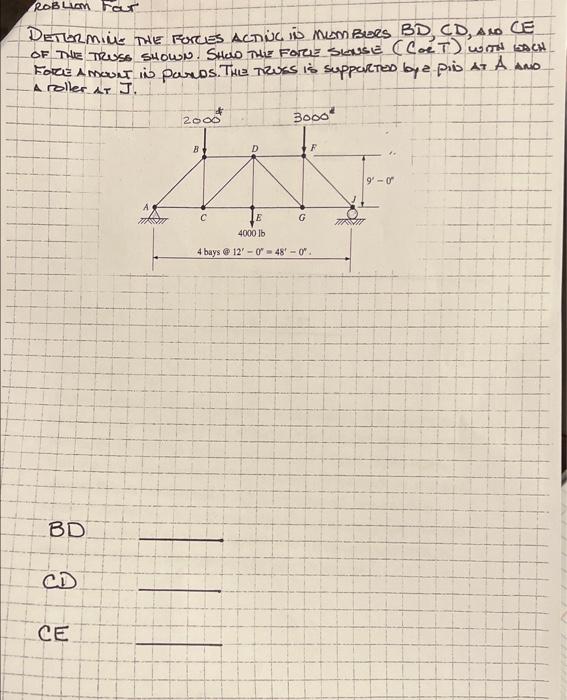 PROBLEM FOUR
DETERMINE THE FORCES ACTING IN MEMBERS BD, CD, AND CE
OF THE TRUSS SHOWN. SHOW THE FORCE SENSE (C or T) WITH EACH
FORCE AMOUNT IN POUNDS. THE TRUSS is supported by a pin AT A AND
A roller AT J.
2000# 3000#
B D F
9' – 0"
A C E G J
4000 lb
4 bays @ 12' – 0" = 48' – 0".
BD
CD
CE